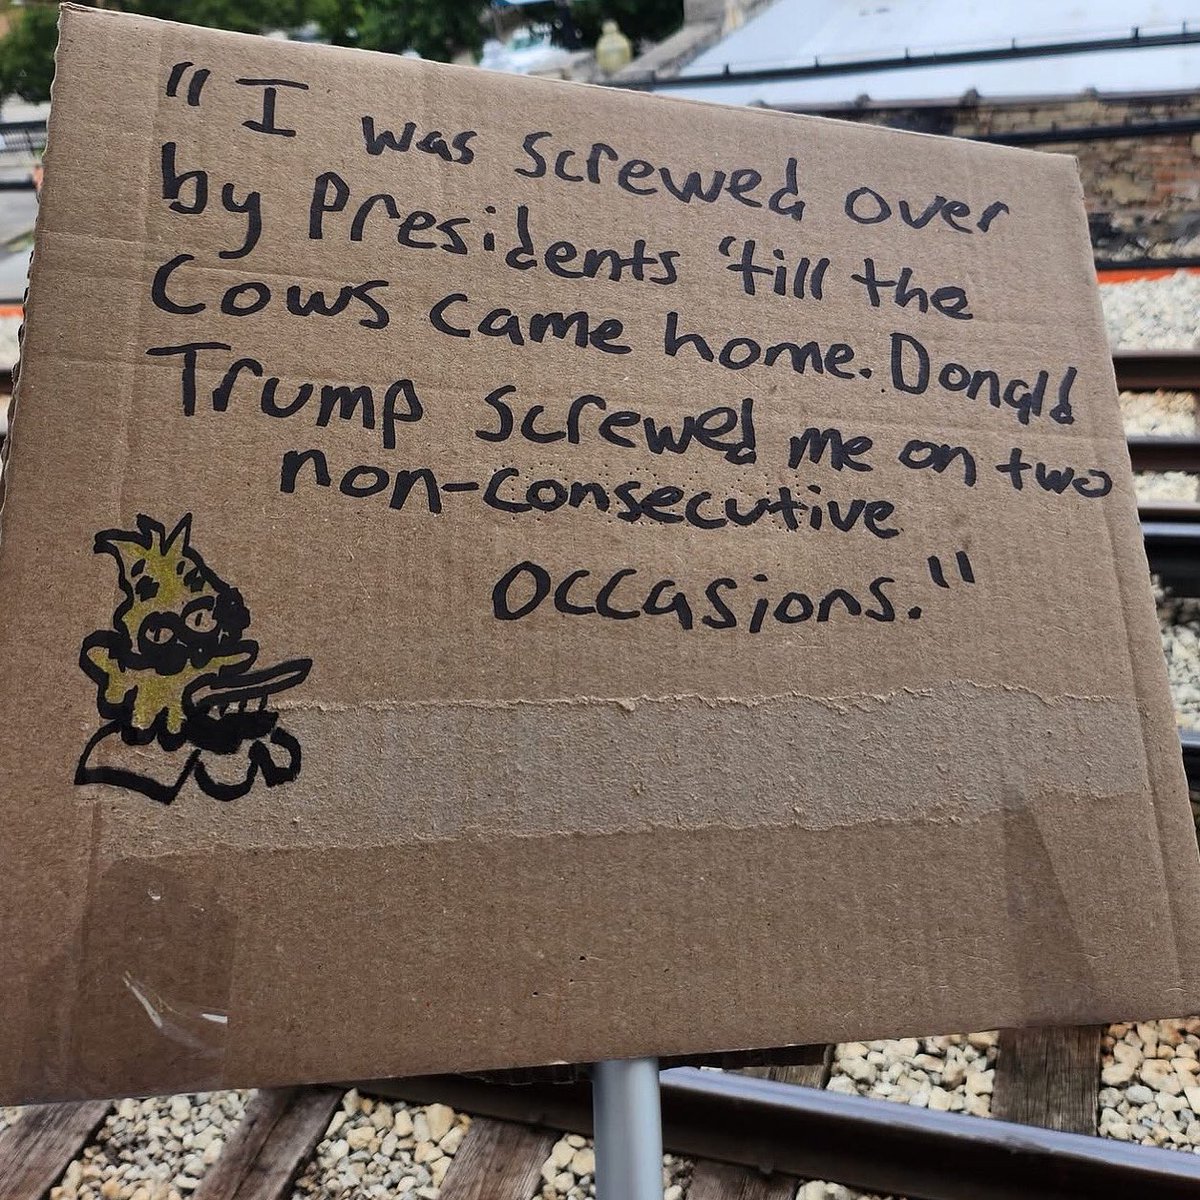 "I was screwed over
by Presidents 'till the
Cows came home. Donald
Trump screwed me on two
non-consecutive
occasions."